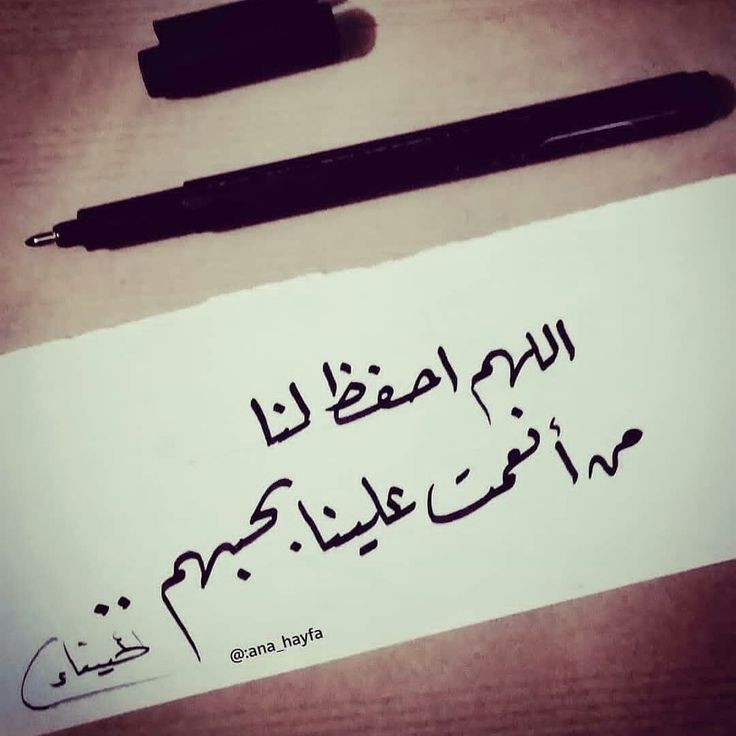 اللهم احفظ لنا
من أنعمت علينا بحبهم ..
@:ana_hayfa